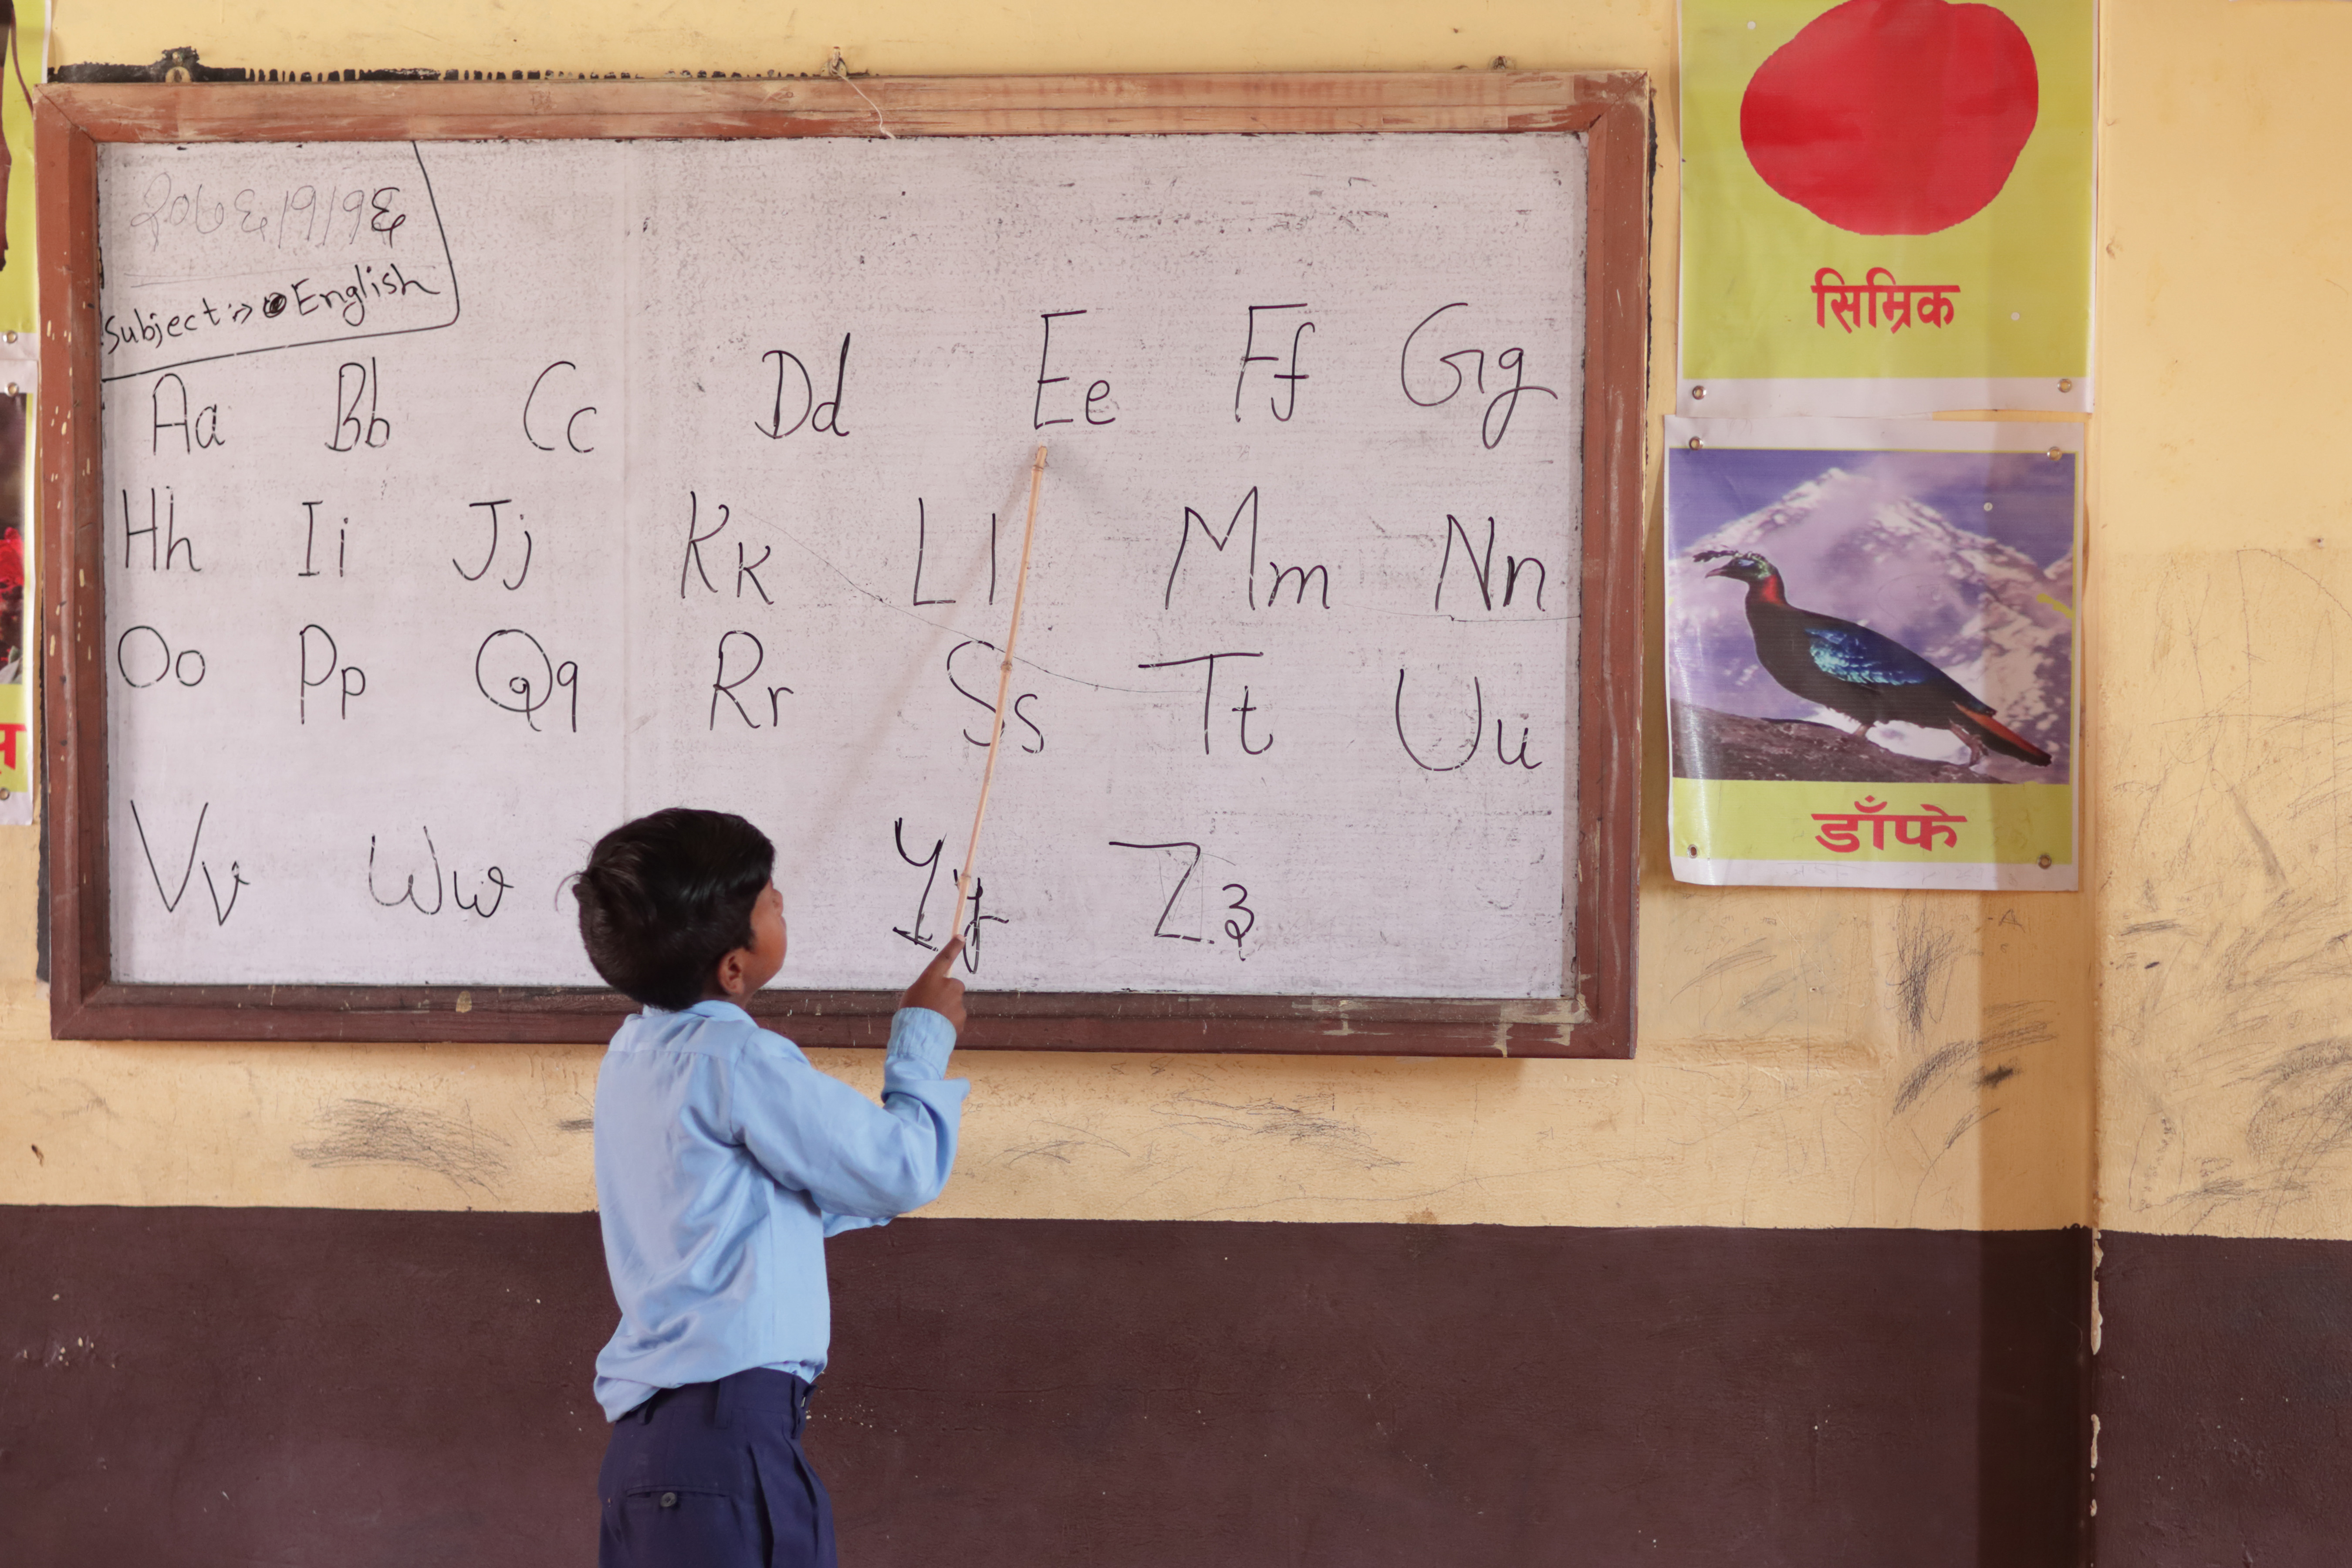 २०७६/१/१६
Subject:-> English
Aa Bb Cc Dd Ee Ff Gg
Hh Ii Jj Kk Ll Mm Nn
Oo Pp Qq Rr Ss Tt Uu
Vv Ww Yy Zz
सिम्रिक
डाँफे